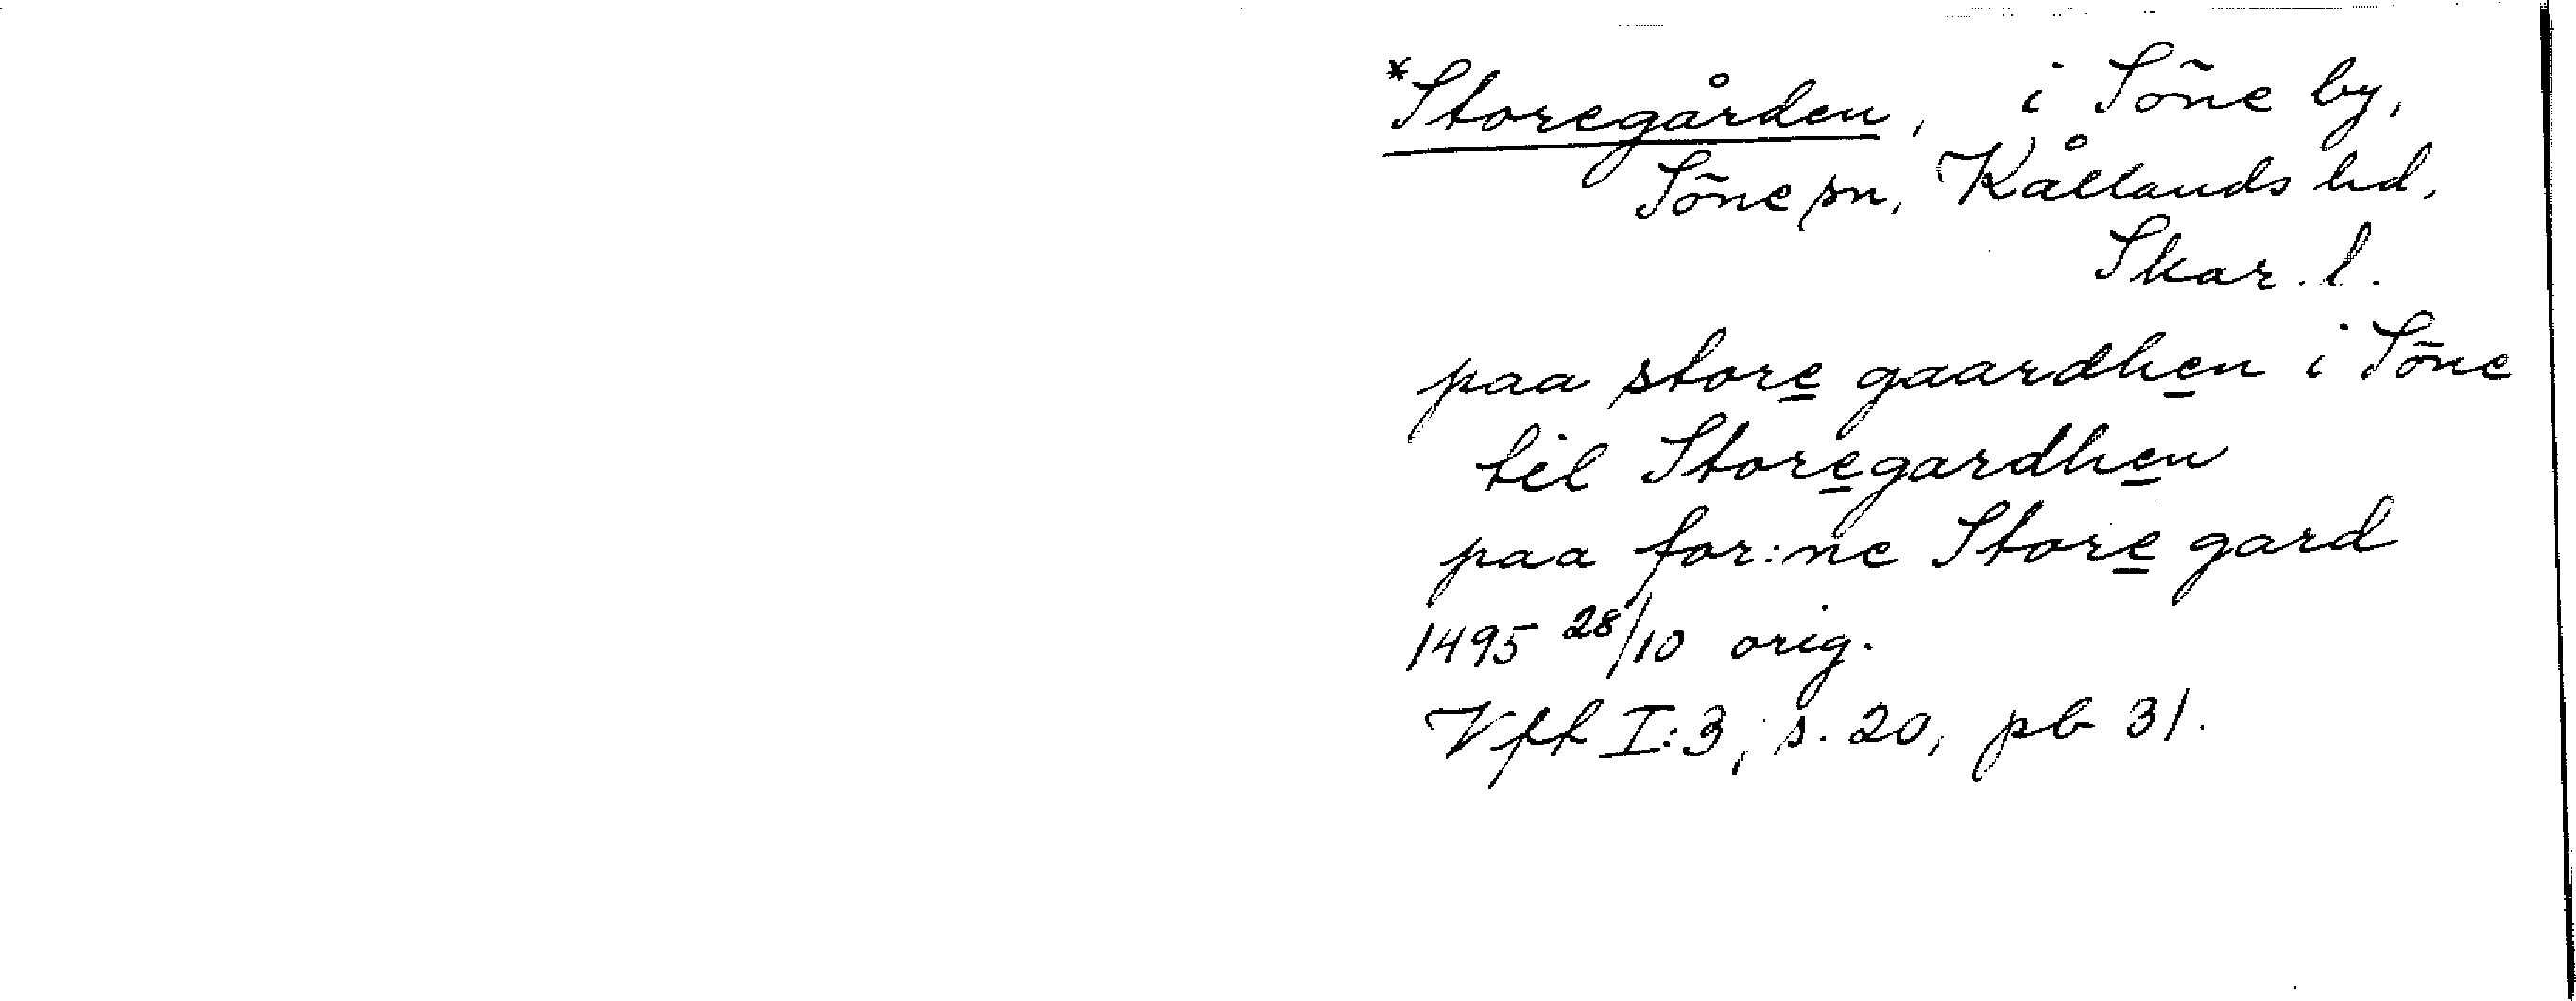 *Storegården, i Söne by,
Söne sn, Kållands hd,
Skar. l.
paa store gaardhen i Söne
til Storegardhen
paa for:ne Store gard
1495 28/10 orig.
Vfft I:3, s. 20, pb 31.